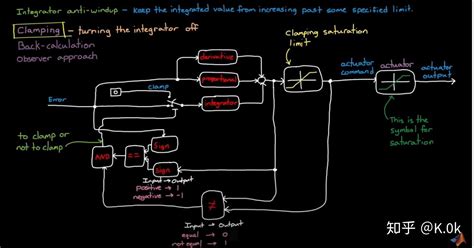 Integrator anti-windup - keep the integrated value from increasing past some specified limit.
Clamping - turning the integrator off
Back-calculation
Observer approach
Clamping saturation
limit
derivative
actuator
command
actuator
actuator
output
clamp
proportional
0
Error
integrator
This is the
symbol for
saturation
to clamp or
not to clamp
Sign
AND
==
Sign
Input → Output
positive → 1
negative → -1
≠
Input → Output
equal → 0
not equal → 1
知乎 @K.0k